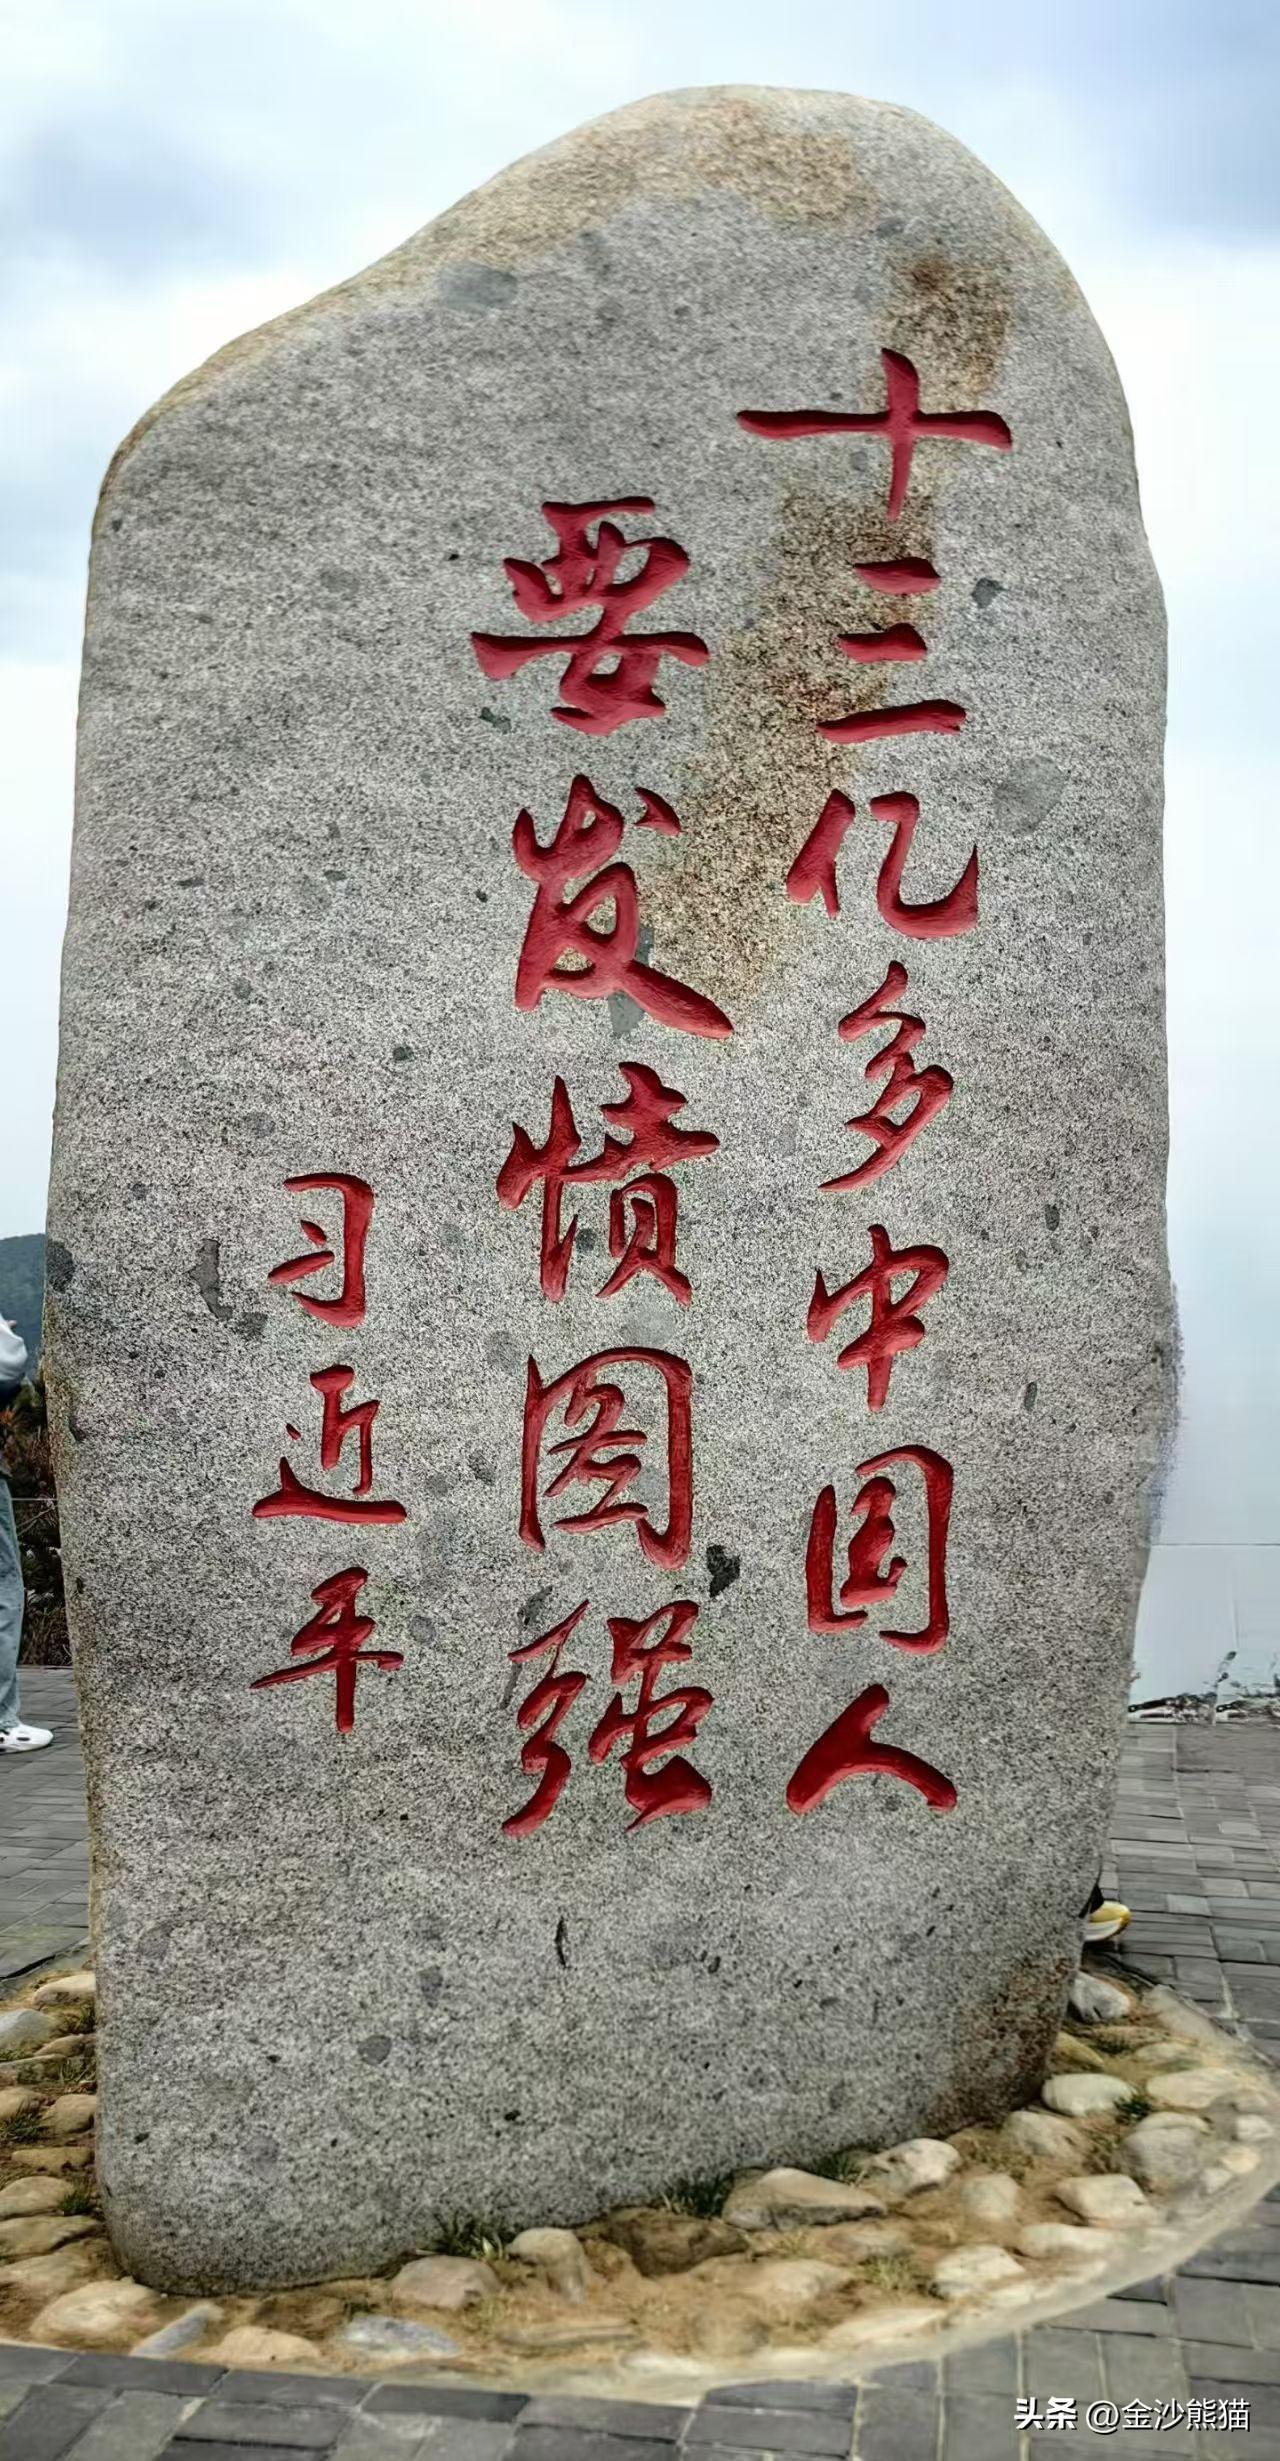 十三亿多中国人
要发愤图强
习近平
头条 @金沙熊猫